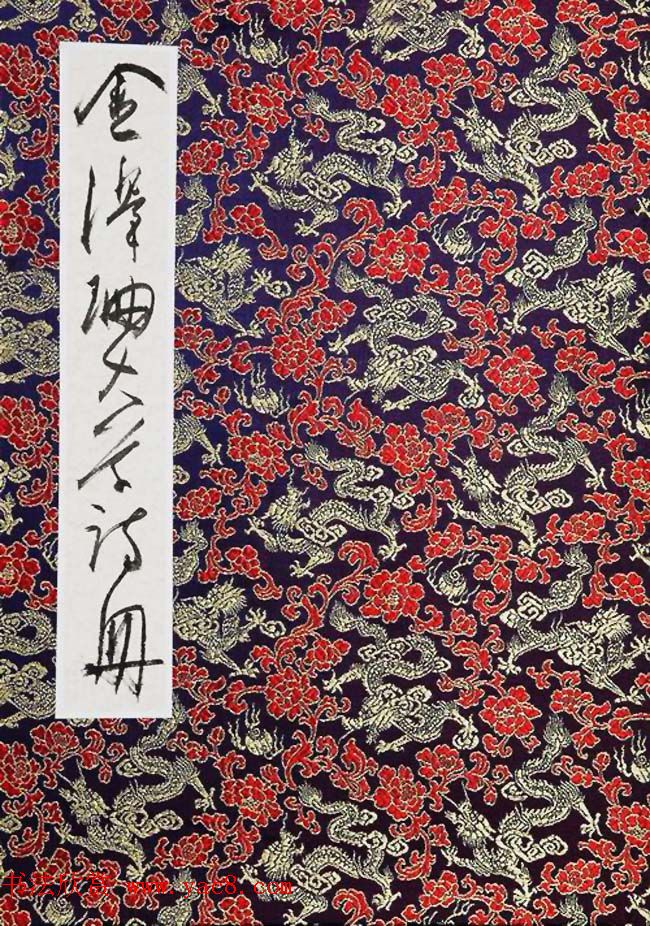 金澤珊大草诗册
书法欣赏 www.yac8.com